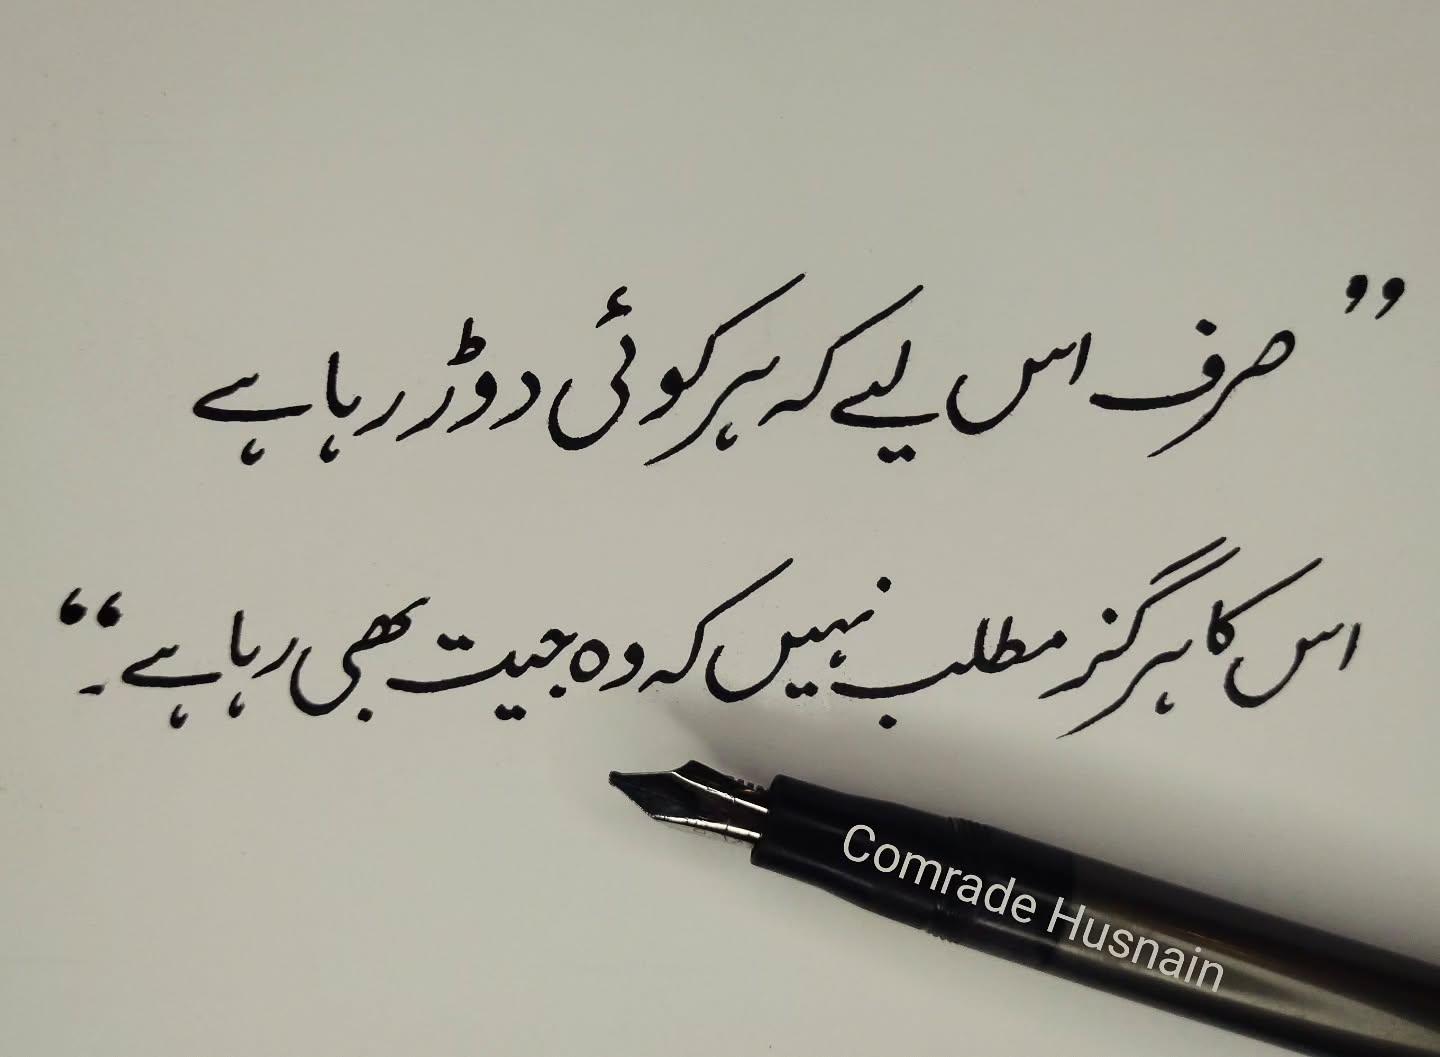 ”صرف اس لیے کہ ہر کوئی دوڑ رہا ہے
اس کا ہرگز مطلب نہیں کہ وہ جیت بھی رہا ہے۔“
Comrade Husnain